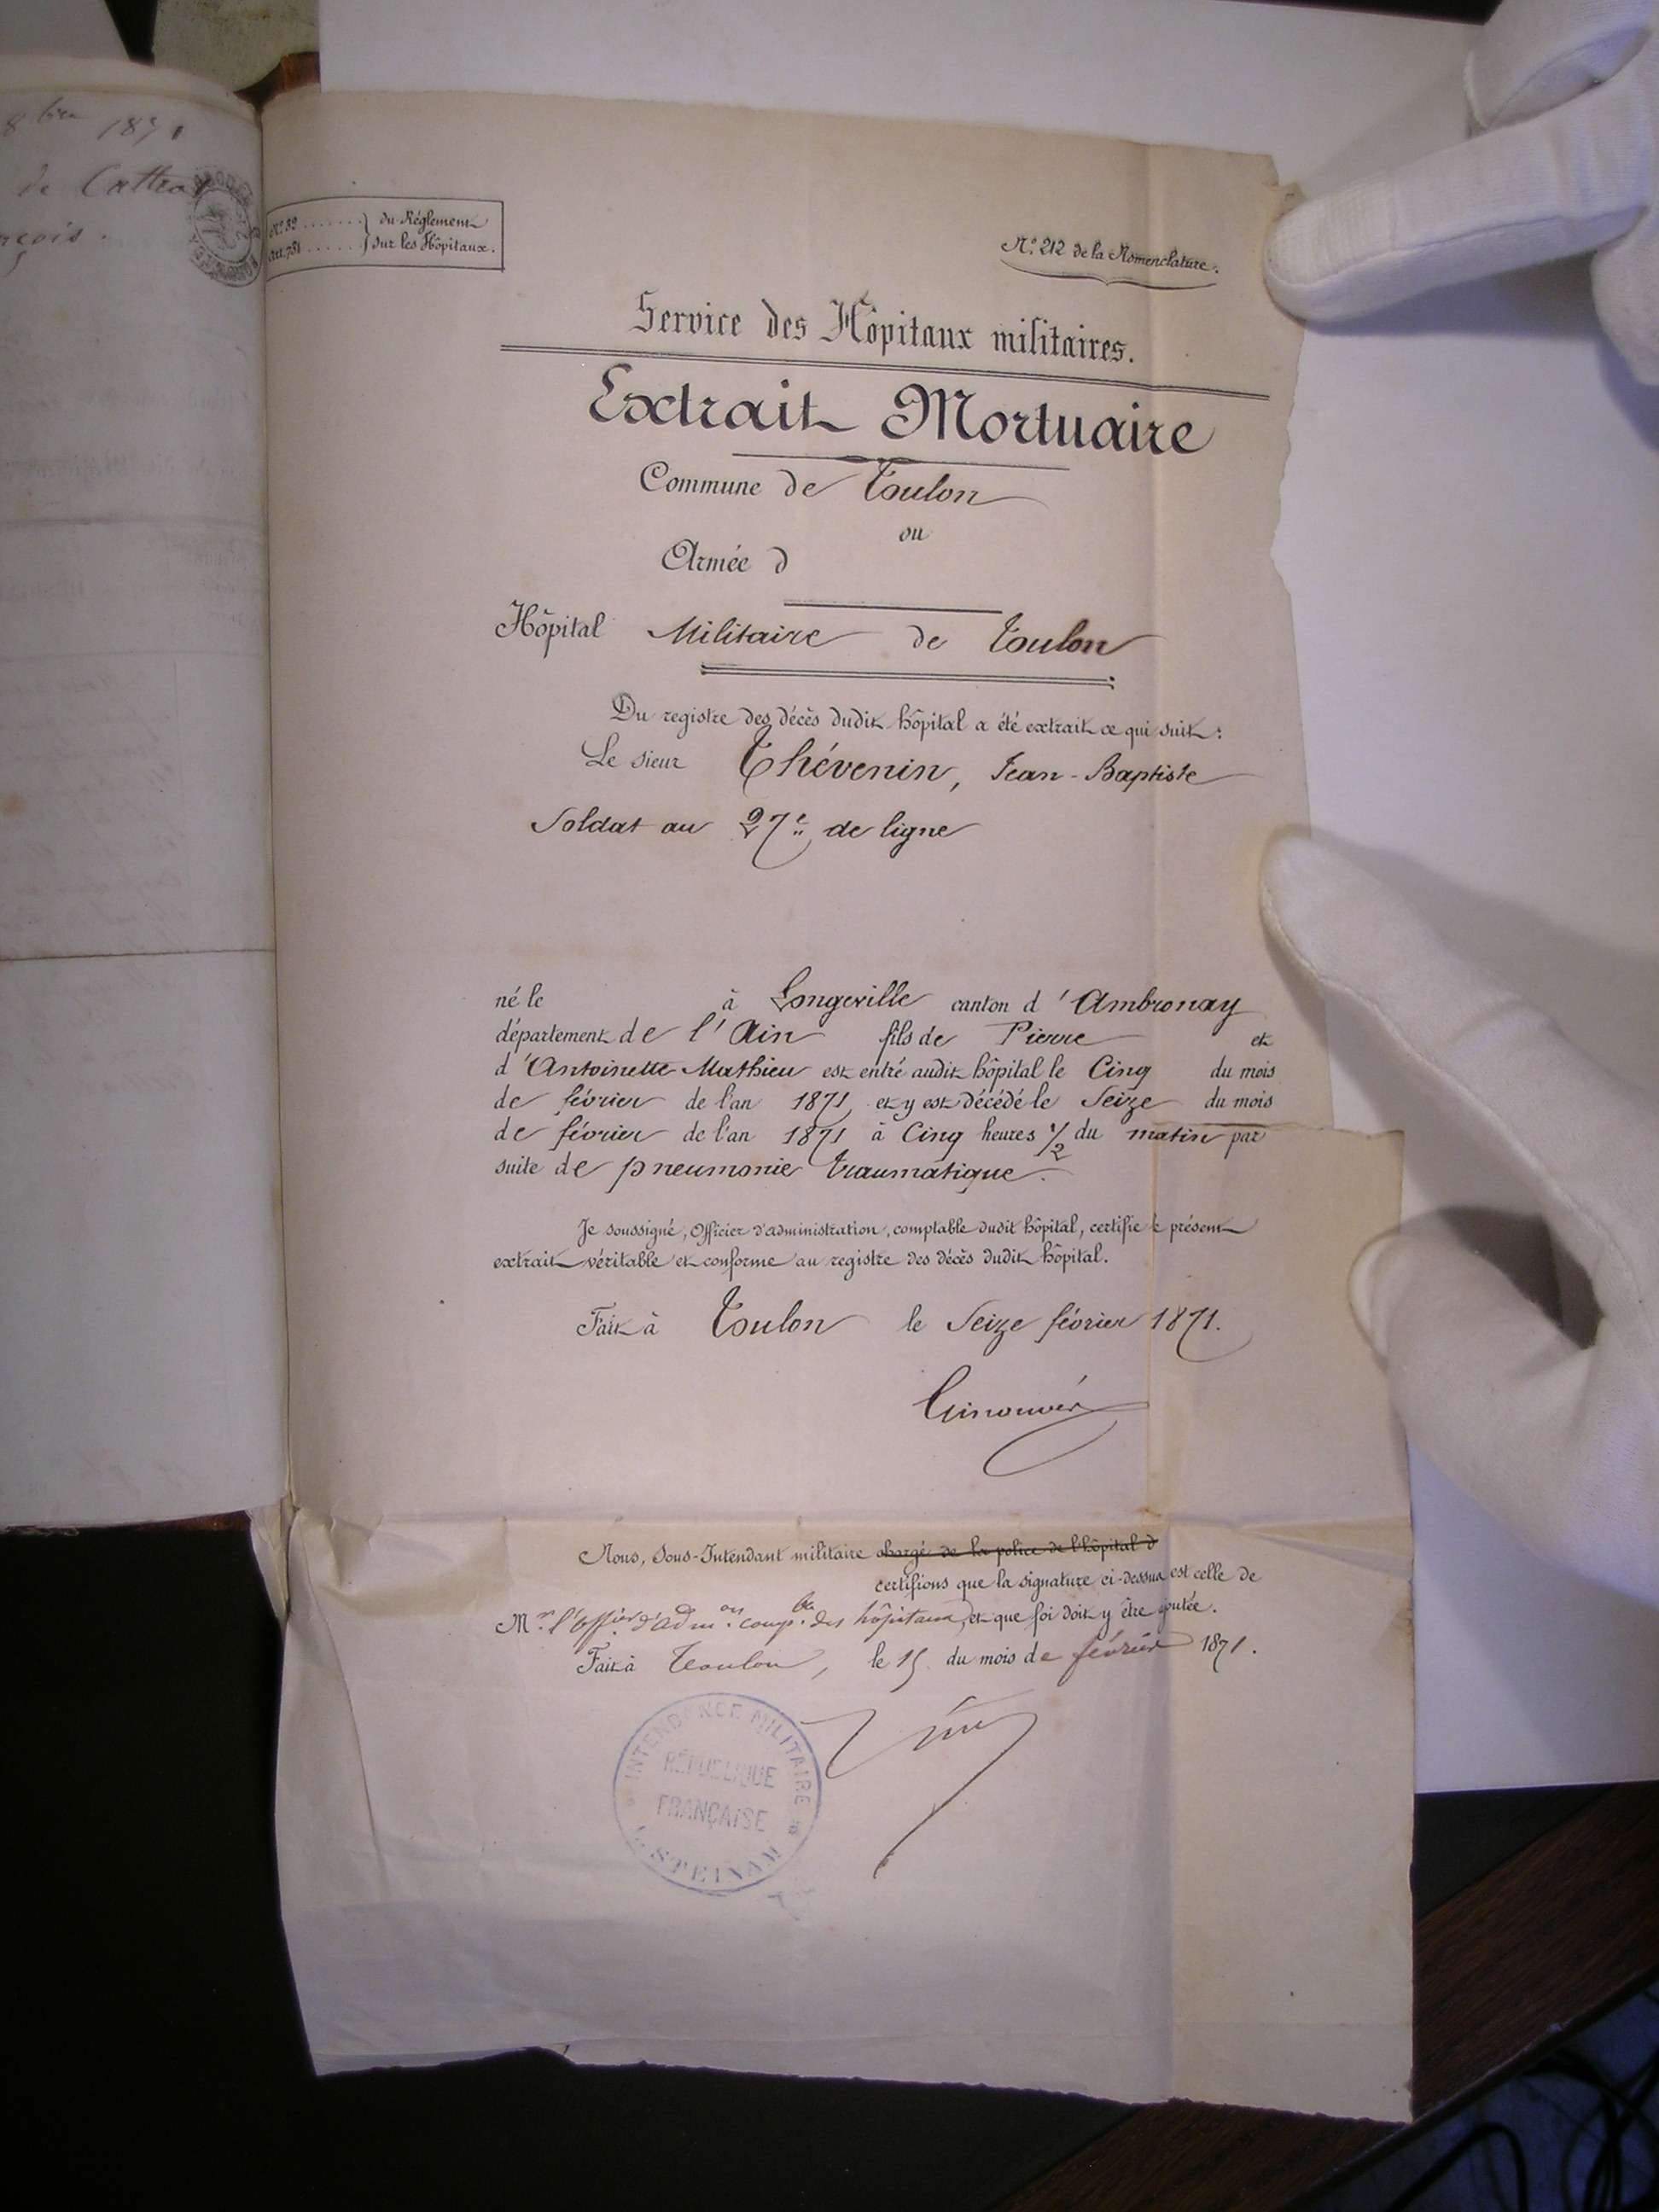 8bre 1871
de Cattra
nçois.
N.º 32 ....... } du Réglement
Art. 751 ..... } sur les Hôpitaux.
N.º 212 de la Nomenclature.
Service des Hôpitaux militaires.
Extrait Mortuaire
Commune de Toulon
ou
Armée d
Hôpital Militaire de Toulon
Du registre des décès dudit hôpital a été extrait ce qui suit :
Le sieur Thévenin, Jean-Baptiste
Soldat au 27e de ligne
né le à Longeville canton d'Ambronay
département de l'Ain fils de Pierre et
d'Antoinette Mathieu est entré audit hôpital le Cinq du mois
de février de l'an 1871, et y est décédé le Seize du mois
de février de l'an 1871 à Cinq heures 1/2 du matin par
suite de pneumonie traumatique.
Je soussigné, Officier d'administration, comptable dudit hôpital, certifie le présent
extrait véritable et conforme au registre des décès dudit hôpital.
Fait à Toulon le Seize février 1871.
Nous, Sous-Intendant militaire chargé de la police de l'hôpital d
certifions que la signature ci-dessus est celle de
Mr l'offier d'admon compble des hôpitaux, et que foi doit y être ajoutée.
Fait à Toulon, le 15 du mois de février 1871.
INTENDANCE MILITAIRE
RÉPUBLIQUE
FRANÇAISE